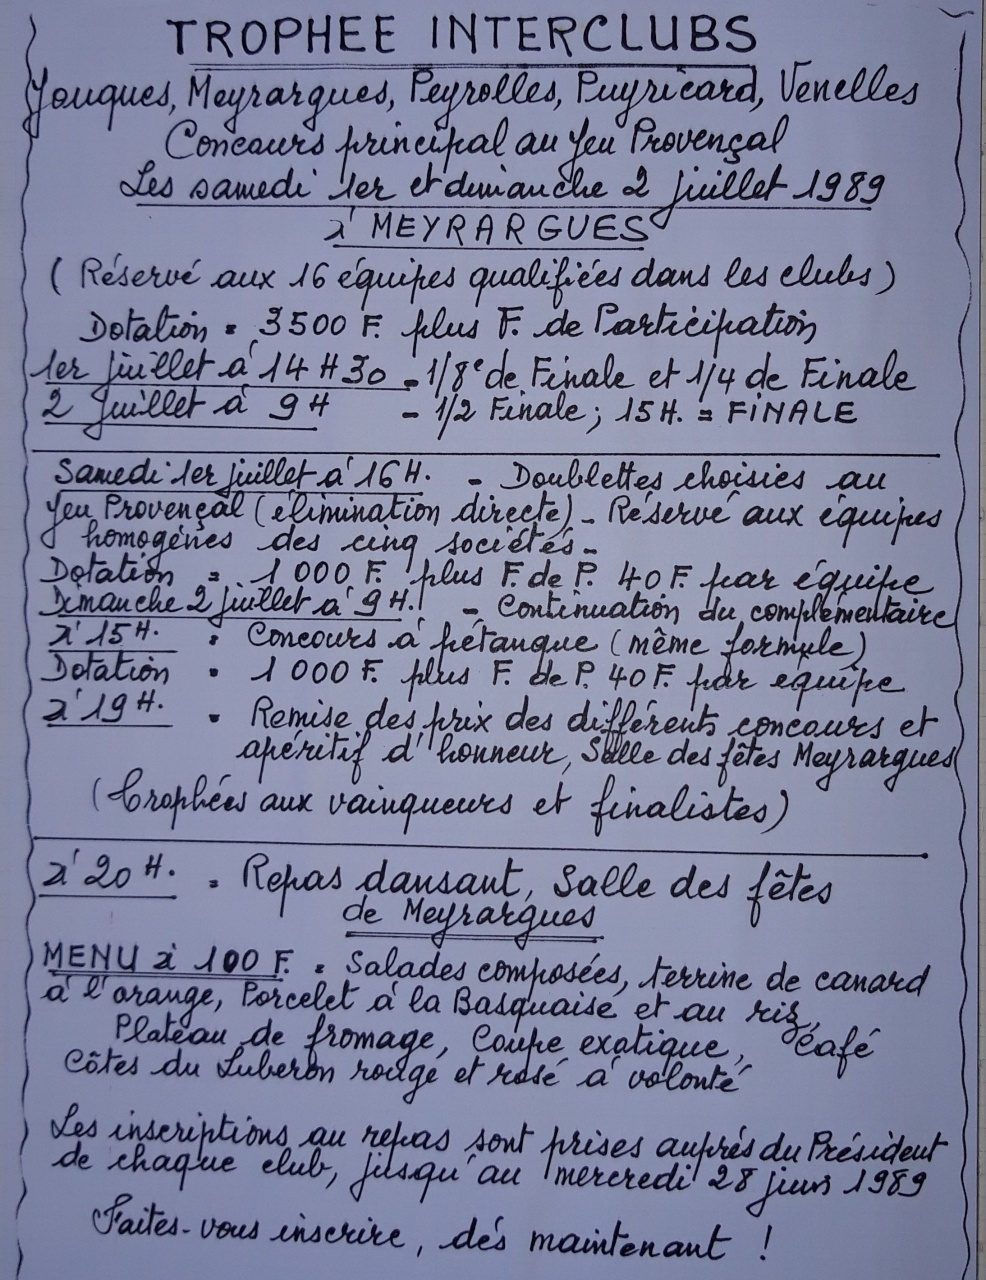 TROPHEE INTERCLUBS
Jouques, Meyrargues, Peyrolles, Puyricard, Venelles
Concours principal au Jeu Provençal
Les samedi 1er et dimanche 2 juillet 1989
à MEYRARGUES
(Réservé aux 16 équipes qualifiées dans les clubs)
Dotation = 3500 F. plus F. de Participation
1er juillet à 14 H 30 - 1/8e de Finale et 1/4 de Finale
2 Juillet à 9 H - 1/2 Finale ; 15 H. = FINALE
Samedi 1er juillet à 16 H. - Doublettes choisies au
Jeu Provençal (élimination directe) - Réservé aux équipes
homogènes des cinq sociétés -
Dotation = 1 000 F. plus F. de P. 40 F. par équipe
Dimanche 2 juillet à 9 H. - Continuation du complémentaire
à 15 H. = Concours à pétanque (même formule)
Dotation = 1 000 F. plus F. de P. 40 F. par équipe
à 19 H. = Remise des prix des différents concours et
apéritif d'honneur, Salle des fêtes Meyrargues
(Trophées aux vainqueurs et finalistes)
à 20 H. = Repas dansant, Salle des fêtes
de Meyrargues
MENU à 100 F. = Salades composées, terrine de canard
à l'orange, Porcelet à la Basquaise et au riz,
Plateau de fromage, Coupe exotique, Café
Côtes du Luberon rouge et rosé à volonté
Les inscriptions au repas sont prises auprès du Président
de chaque club, jusqu'au mercredi 28 juin 1989
Faites-vous inscrire, dès maintenant !